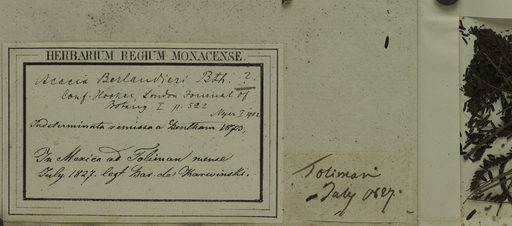 HERBARIUM REGIUM MONACENSE.
Acacia Berlandieri Bth. ?
Conf. Hooker, London Journal of
Botany I p. 522
Indeterminata remissa a Bentham 1873.
In Mexico ad Toliman mense
July 1827. legt Bar. de Karwinski.
Toliman
July 1827.